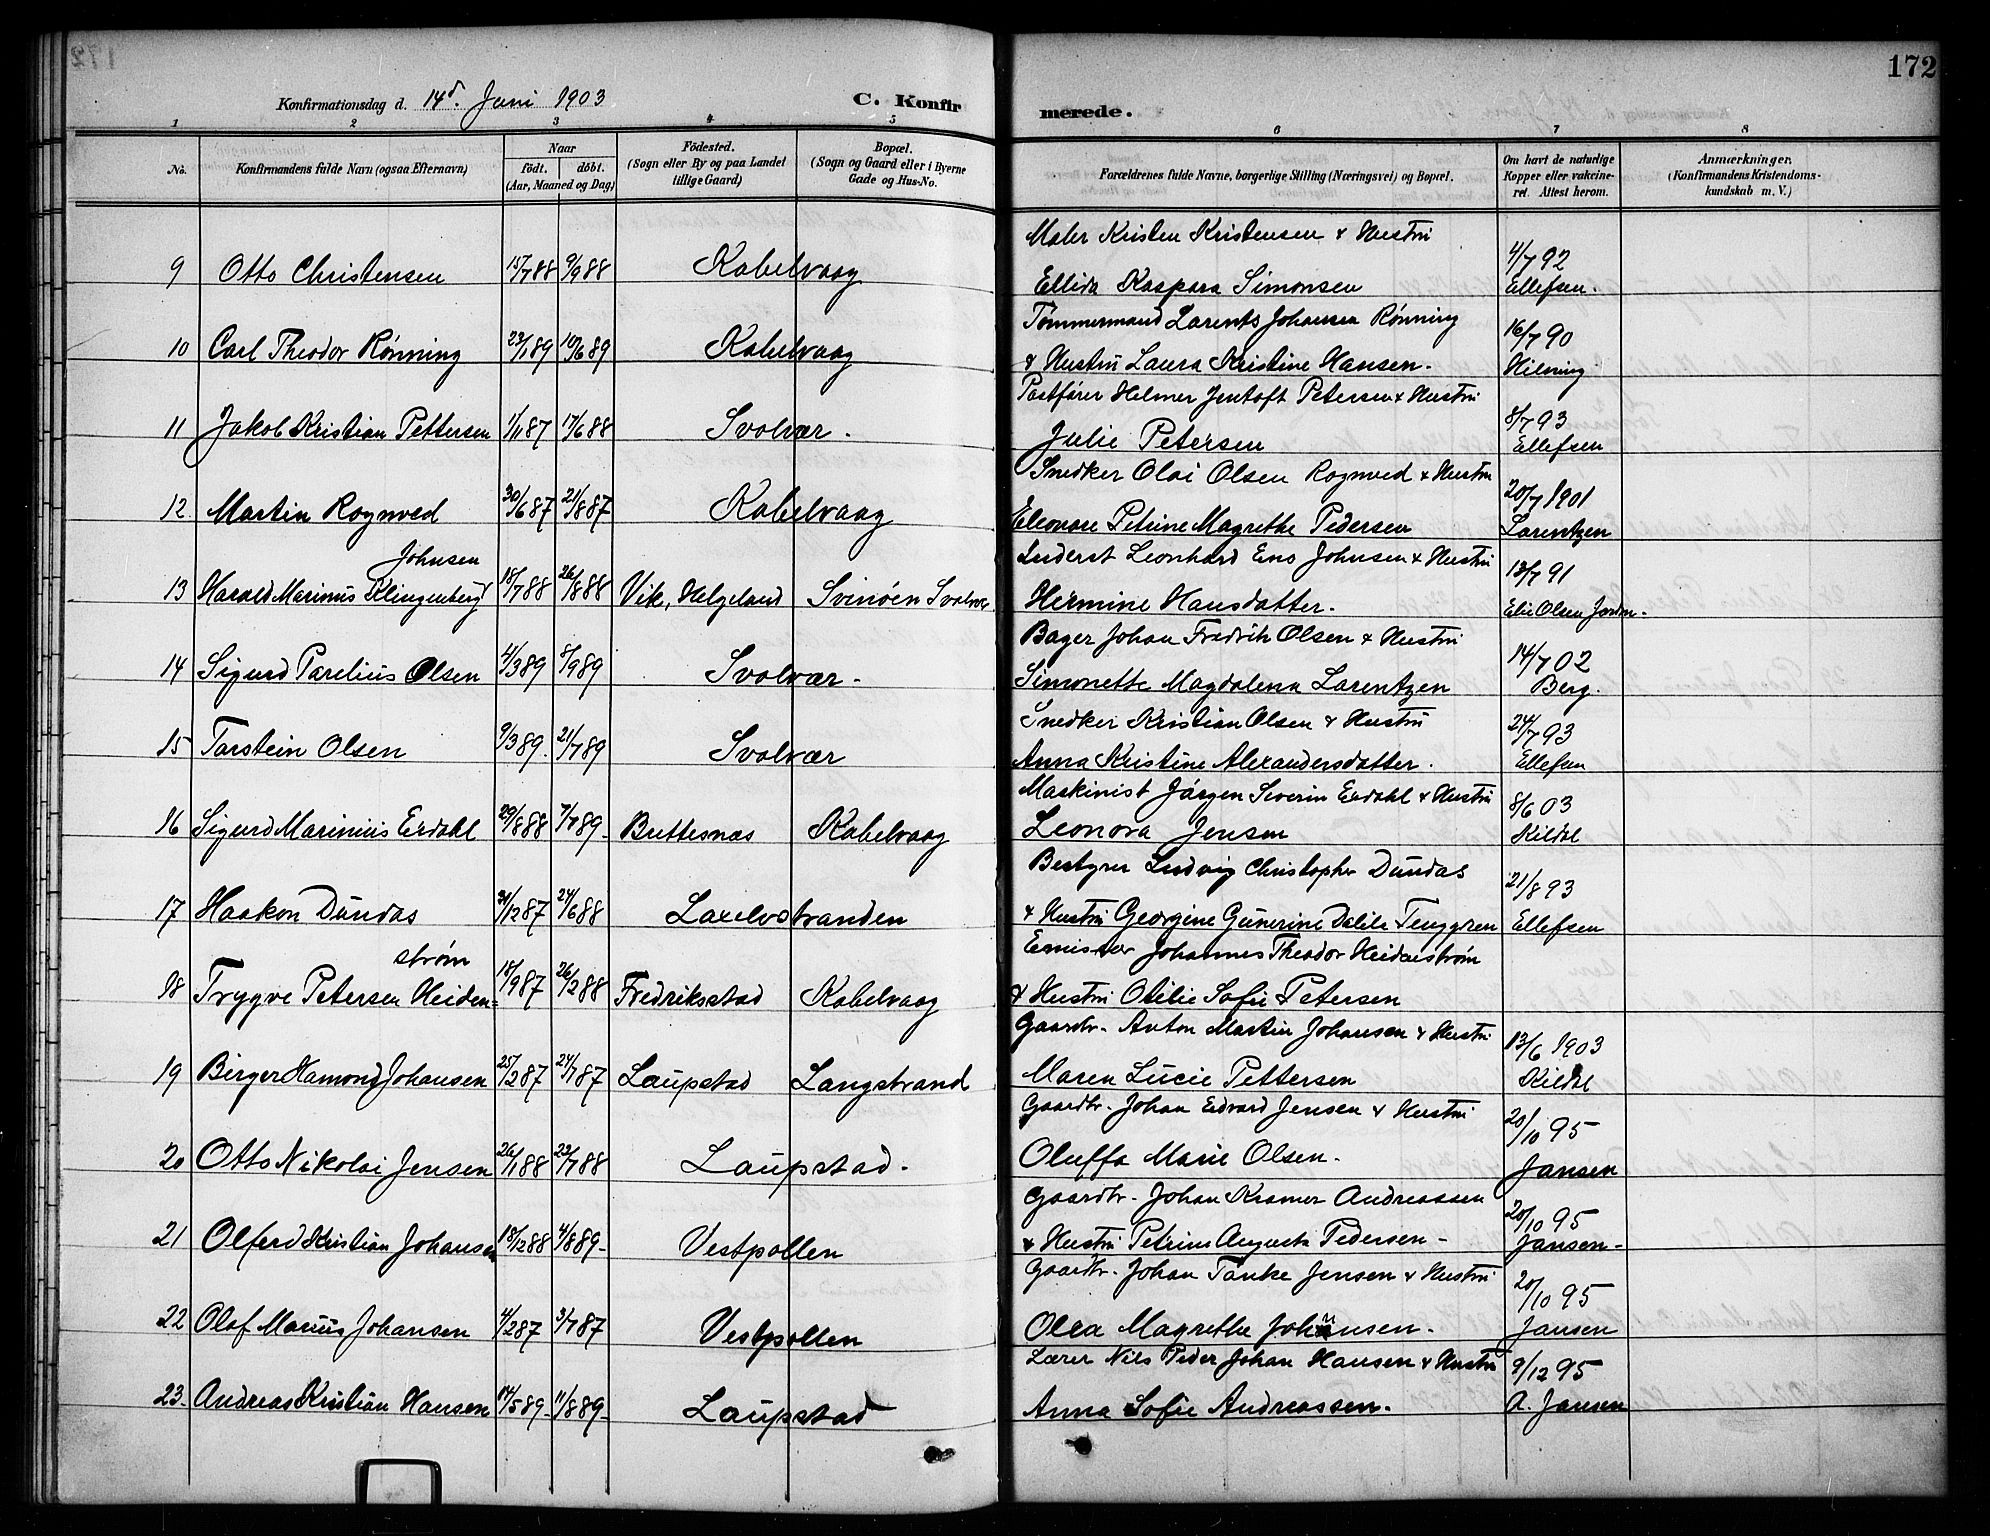 172
Konfirmationsdag d. 14d. Juni 1903
C. Konfirmerede.
1 2 3 4 5 6 7 8
No. Konfirmandens fulde Navn (ogsaa Efternavn) Naar født. døbt. (Aar, Maaned og Dag) Fødested. (Sogn eller By og paa Landet tillige Gaard) Bopæl. (Sogn og Gaard eller i Byerne Gade og Hus-No. Forældrenes fulde Navne, borgerlige Stilling (Næringsvei) og Bopæl. Om havt de naturlige Kopper eller vaccineret. Attest herom. Anmærkninger. (Konfirmandens Kristendomskundskab m. V.)
9 Otto Christensen 15/7 88 9/9 88 Kabelvaag Maler Kristen Kristensen & Hustru 4/7 92
Ellida Kaspara Simonsen Ellefsen.
10 Carl Theodor Rønning 23/1 89 10/6 89 Kabelvaag Tømmermand Larents Johansen Rønning 16/7 90
& Hustru Laura Kristine Hansen.
11 Jakob Kristian Pettersen 1/11 87 17/6 88 Svolvær. Postfører Helmer Jentoft Petersen & Hustru 8/7 93
Julie Petersen Ellefsen
12 Martin Rognved 30/6 87 21/8 87 Kabelvaag Snedker Olai Olsen Rognved & Hustru 20/7 1901
Eleonore Petrine Magrethe Pedersen Larentzen
13 Harald Marinus Klingenberg Johnsen 18/7 88 26/8 88 Vik, Helgeland Svinøen Svolvær Inderst Leonhard Ens Johnsen & Hustru 13/7 91
Hermine Hansdatter. Elie Olsen
14 Sigurd Parelius Olsen 4/3 89 8/9 89 Svolvær. Bager Johan Fredrik Olsen & Hustru 14/7 02
Simonette Magdalena Larentzen Berg.
15 Torstein Olsen 9/3 89. 21/7 89 Svolvær Snedker Kristian Olsen & Hustru 24/7 93
Anna Kristine Alexandersdatter. Ellefsen
16 Sigurd Marinius Eidahl 29/8 88 7/7 89. Brettesnæs Kabelvaag Maskinist Jørgen Severin Eidahl & Hustru 8/6 03
Leonora Jensen Kildal
17 Haakon Dundas 31/12 87 24/6 88 Laxelvstranden Bestyrer Ludvig Christopher Dundas 21/8 93
& Hustru Georgine Gunerine Dalila Tenggren Ellefsen
18 Trygve Petersen Heiden=strøm 18/9 87 26/2 88 Fredriksstad Kabelvaag Emissær Johannes Theodor Heidenstrøm
& Hustru Otilie Sofie Petersen
19 Birger Hamond Johansen 25/2 87 24/7 87 Laupstad Langstrand Gaardbr. Anton Martin Johansen & Hustru 13/6 1903
Maren Lucie Pettersen Kildal
20 Otto Nikolai Jensen 26/1 88 22/7 88 Laupstad. Gaardbr. Johan Edvard Jensen & Hustru 20/10 95
Oluffa Marie Olsen. Jansen
21 Olferd Kristian Johansen 18/12 88 4/8 89. Vestpollen Gaardbr. Johan Kramer Andreassen 20/10 95
& Hustru Petrine Augusta Pedersen - Jansen.
22 Olaf Marius Johansen 4/2 87 3/7 87 Vestpollen Gaardbr. Johan Tanke Jensen & Hustru 20/10 95
Olea Magrethe Johnsen. Jansen
23. Andreas Kristian Hansen 14/5 89. 11/8 89. Laupstad Lærer Nils Peder Johan Hansen & Hustru 9/12 95
Anna Sofie Andreassen. R. Jansen